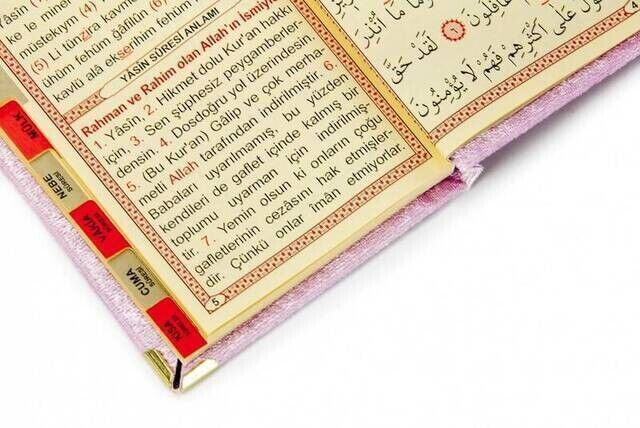 ze le mine
müstekıym (4)
(5) Li tünzira kavme
ühüm fehüm ğafilûn
kavlü alâ ekserihim fehüm
YÂSİN SÛRESİ ANLAMI
Rahman ve Rahim olan Allah'ın ismiyle
1. Yâsîn, 2. Hikmet dolu Kur'an hakkı
için, 3. Sen şüphesiz peygamberler-
densin. 4. Dosdoğru yol üzerindesin.
5. (Bu Kur'an) Gâlip ve çok merha-
metli Allah tarafından indirilmiştir. 6.
Babaları uyarılmamış, bu yüzden
kendileri de gaflet içinde kalmış bir
toplumu uyarman için indirilmiş-
tir. 7. Yemin olsun ki onların çoğu
gafletlerinin cezasını hak etmişler-
dir. Çünkü onlar îman etmiyorlar.
5
مَا أُنْذِرَ
غَافِلُونَ ﴿٦﴾ لَقَدْ حَقَّ
الْقَوْلُ عَلَى أَكْثَرِهِمْ فَهُمْ لَا يُؤْمِنُونَ
MÜLK
NEBE
SÛRESİ
VAKIA
SÛRESİ
CUMA
SÛRESİ
KISA